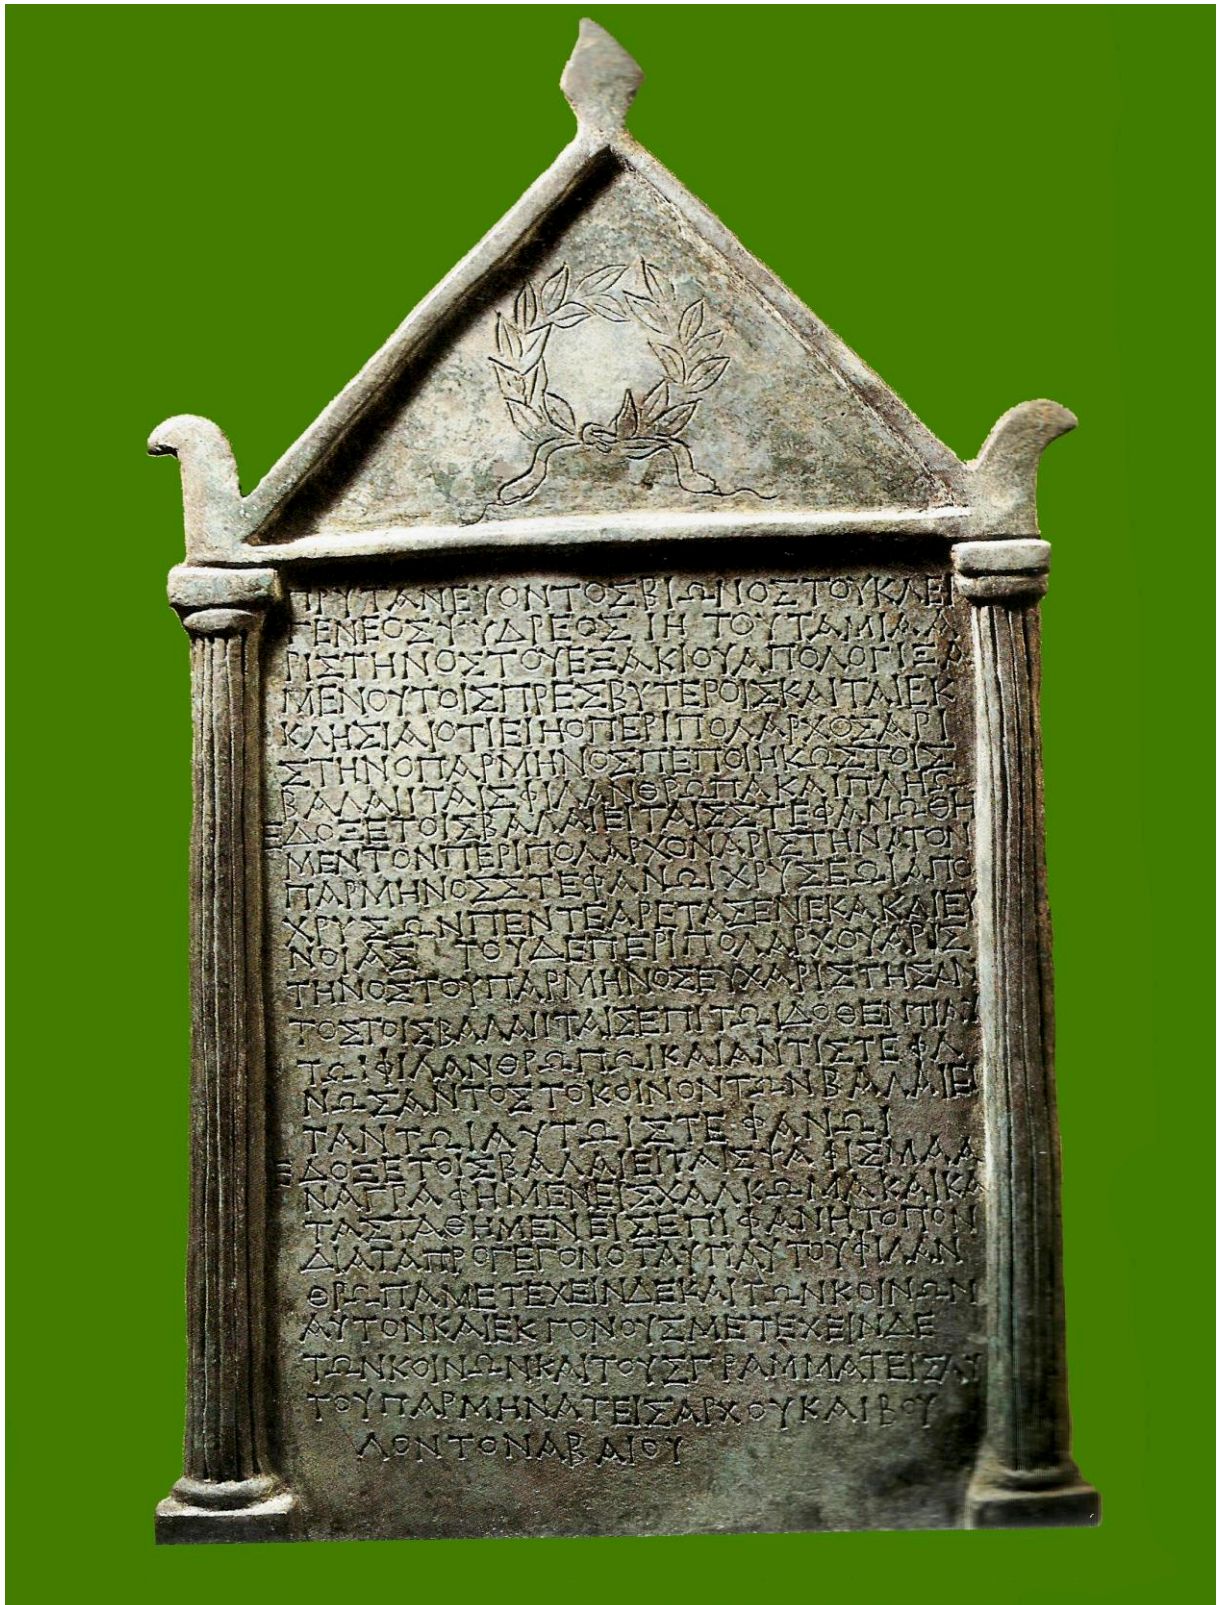 ΠΡΥΤΑΝΕΥΟΝΤΟΣΒΙΩΝΟΣΤΟΥΚΛΕΙ
ΓΕΝΕΟΣΨΥΔΡΕΟΣ ΙΗ ΤΟΥΤΑΜΙΑΑ
ΡΙΣΤΗΝΟΣΤΟΥΕΞΑΚΙΟΥΑΠΟΛΟΓΙΞΑ
ΜΕΝΟΥΤΟΙΣΠΡΕΣΒΥΤΕΡΟΙΣΚΑΙΤΑΙΕΚ
ΚΛΗΣΙΑΙΟΤΙΕΙΗΟΠΕΡΙΠΟΛΑΡΧΟΣΑΡΙ
ΣΤΗΝΟΠΑΡΜΗΝΟΣΠΕΠΟΙΗΚΩΣΤΟΙΣ
ΒΑΛΑΙΙΤΑΙΣΦΙΛΑΝΘΡΩΠΑΚΑΙΠΛΗΩ
ΕΔΟΞΕΤΟΙΣΒΑΛΑΙΕΙΤΑΙΣΣΤΕΦΑΝΩΘΗ
ΜΕΝΤΟΝΠΕΡΙΠΟΛΑΡΧΟΝΑΡΙΣΤΗΝΑΤΟΝ
ΠΑΡΜΗΝΟΣΣΤΕΦΑΝΩΙΧΡΥΣΕΩΙΑΠΟ
ΧΡΙΣΩΝΠΕΝΤΕΑΡΕΤΑΣΕΝΕΚΑΚΑΙΕΥ
ΝΟΙΑΣ ΤΟΥΔΕΠΕΡΙΠΟΛΑΡΧΟΥΑΡΙΣ
ΤΗΝΟΣΤΟΥΠΑΡΜΗΝΟΣΕΥΧΑΡΙΣΤΗΣΑΝ
ΤΟΣΤΟΙΣΒΑΛΑΙΙΤΑΙΣΕΠΙΤΩΙΔΟΘΕΝΤΙΑΥ
ΤΩΙΦΙΛΑΝΘΡΩΠΩΙΚΑΙΑΝΤΙΣΤΕΦΑ
ΝΩΣΑΝΤΟΣΤΟΚΟΙΝΟΝΤΩΝΒΑΛΑΙΕΙ
ΤΑΝΤΩΙΑΥΤΩΙΣΤΕΦΑΝΩΙ
ΕΔΟΞΕΤΟΙΣΒΑΛΑΙΕΙΤΑΙΣΨΑΦΙΣΜΑΑ
ΝΑΓΡΑΦΗΜΕΝΕΙΣΧΑΛΚΩΜΑΚΑΙΚΑ
ΤΑΣΤΑΘΗΜΕΝΕΙΣΕΠΙΦΑΝΗΤΟΠΟΝ
ΔΙΑΤΑΠΡΟΓΕΓΟΝΟΤΑΥΤΙΑΥΤΟΥΦΙΛΑΝ
ΘΡΩΠΑΜΕΤΕΧΕΙΝΔΕΚΑΙΤΩΝΚΟΙΝΩΝ
ΑΥΤΟΝΚΑΙΕΚΓΟΝΟΥΣΜΕΤΕΧΕΙΝΔΕ
ΤΩΝΚΟΙΝΩΝΚΑΙΤΟΥΣΓΡΑΜΜΑΤΕΙΣΑΥ
ΤΟΥΠΑΡΜΗΝΑΤΕΙΣΑΡΧΟΥΚΑΙΒΟΥ
ΛΟΝΤΟΝΑΒΑΙΟΥ